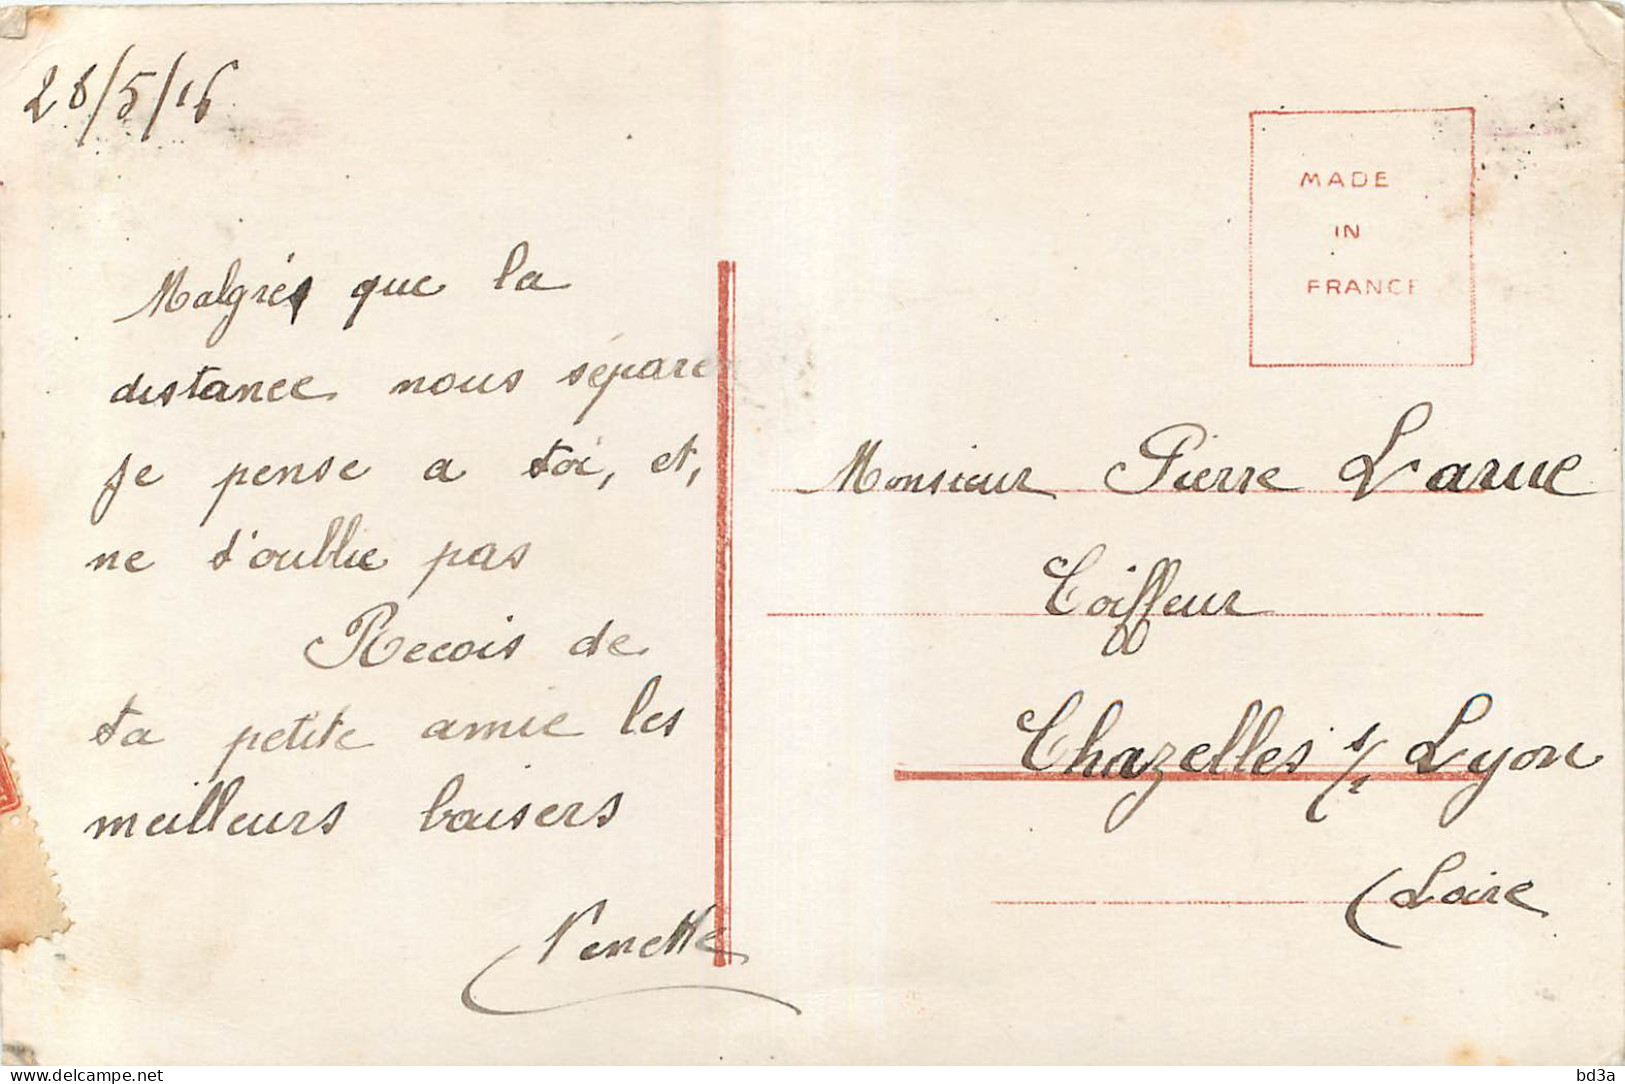 28/5/16
Malgrés que la
distance nous sépare
je pense a toi, et,
ne t'oublie pas
Recois de
ta petite amie les
meilleurs baisers
MADE
IN
FRANCE
Monsieur Pierre Larue
Coiffeur
Chazelles s/ Lyon
(Loire
delcampe.net
bd3a